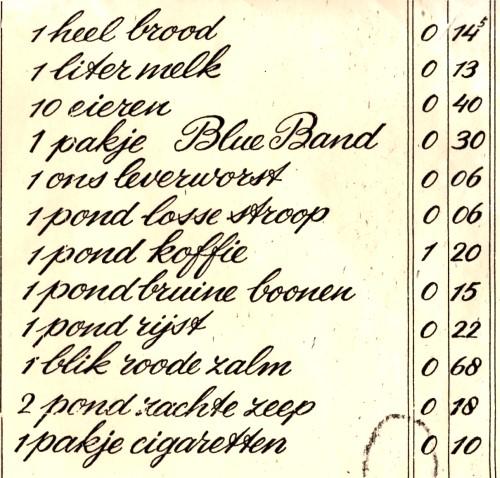 1 heel brood 0 14⁵
1 liter melk 0 13
10 eieren 0 40
1 pakje Blue Band 0 30
1 ons leverworst 0 06
1 pond losse stroop 0 06
1 pond koffie 1 20
1 pond bruine boonen 0 15
1 pond rijst 0 22
1 blik roode zalm 0 68
2 pond zachte zeep 0 18
1 pakje cigaretten 0 10